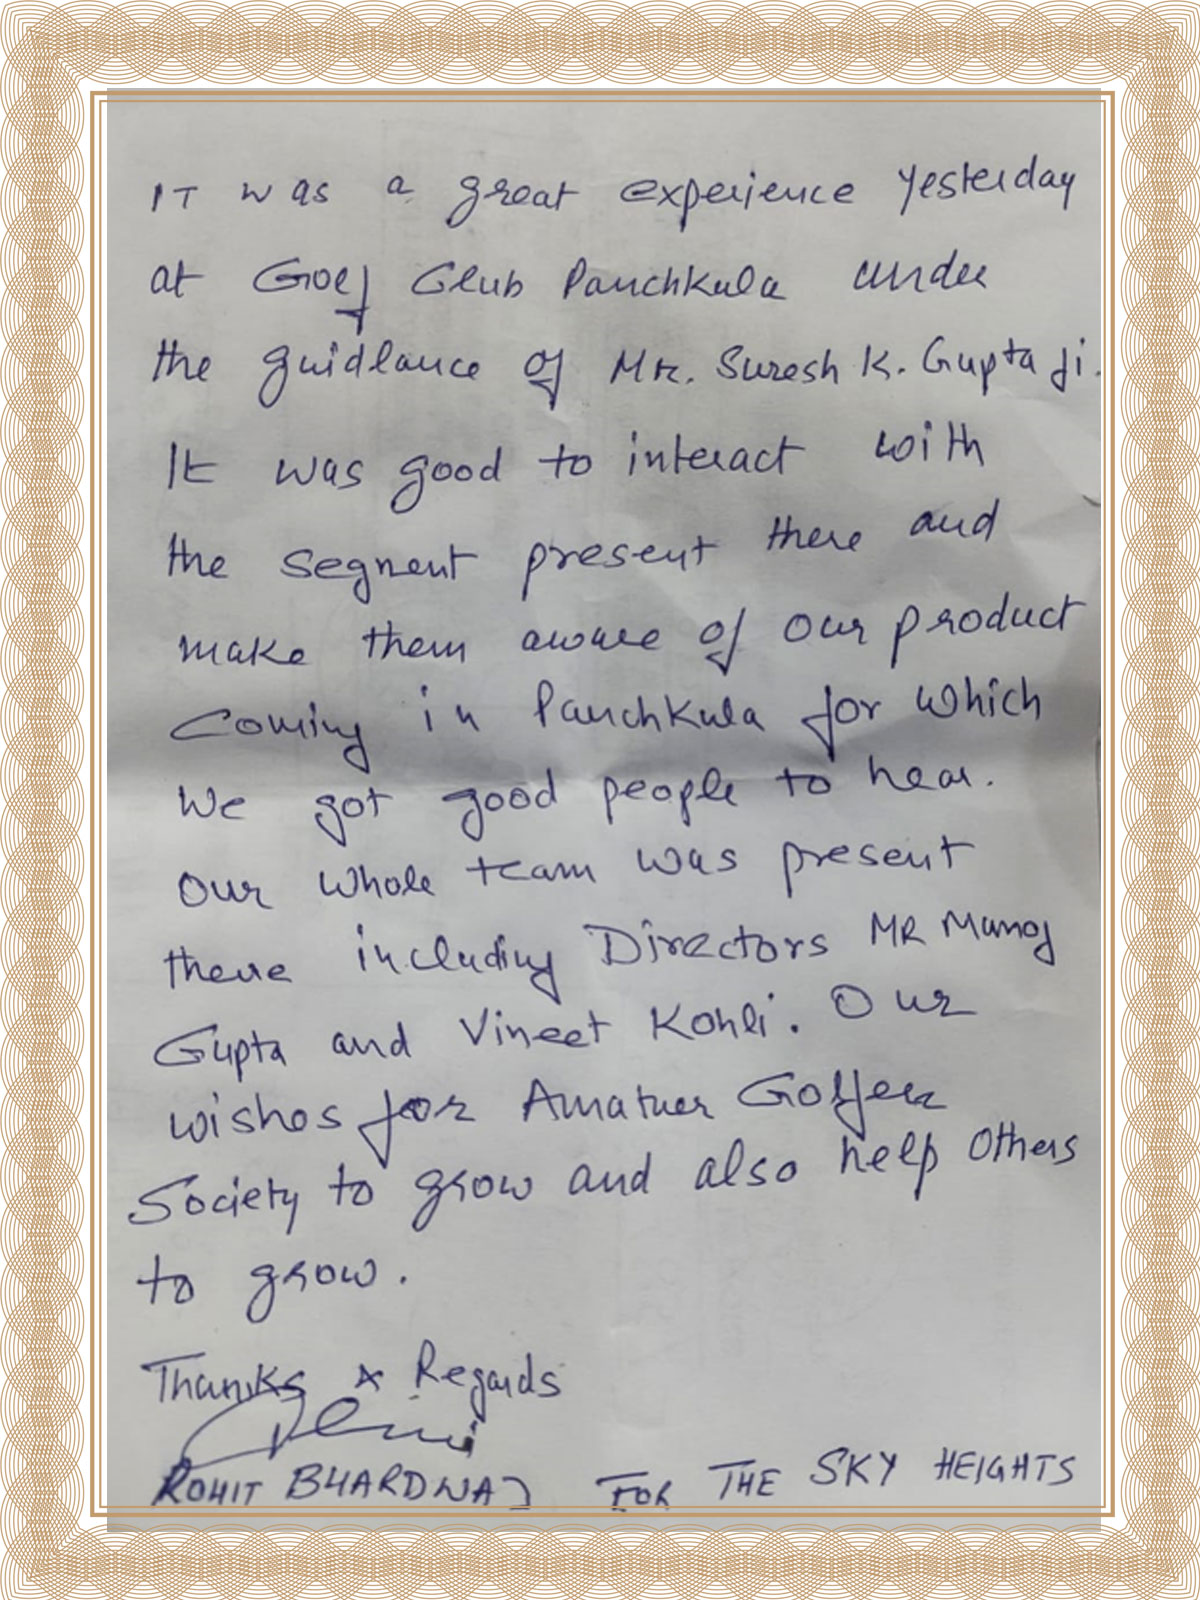 IT was a great experience yesterday
at Golf Club Panchkula under
the guidlance of Mr. Suresh K. Gupta Ji.
It was good to interact with
the segnent present there and
make them aware of our product
Coming in Panchkula for which
We got good people to hear.
Our whole team was present
there including Directors MR Manoj
Gupta and Vineet Kohli. Our
wishes for Amatuer Golfer
Society to grow and also help others
to grow.
Thanks & Regards
ROHIT BHARDWAJ FOR THE SKY HEIGHTS